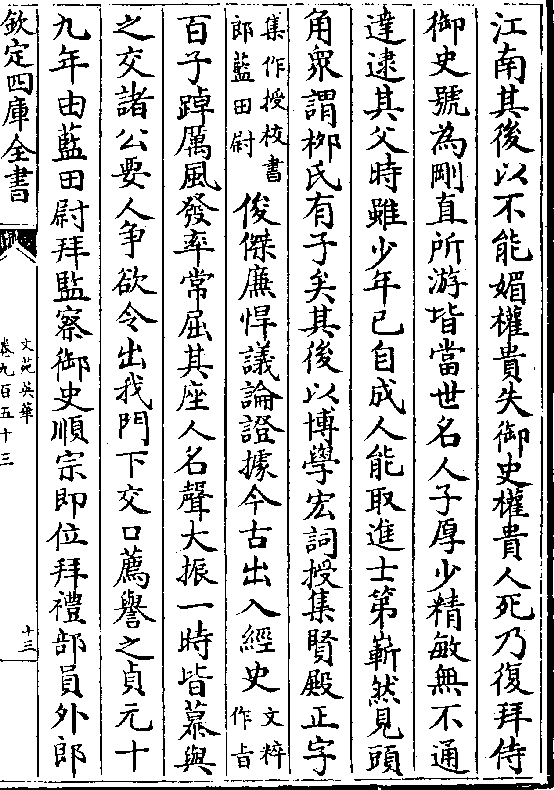 江南其後以不能媚權貴失御史權貴人死乃復拜侍
御史號為剛直所游皆當世名人子厚少精敏無不通
達逮其父時雖少年已自成人能取進士第嶄然見頭
角衆謂栁氏有子矣其後以博學宏詞授集賢殿正字
集作授校書
郎藍田尉
俊傑廉悍議論證據今古出入經史
文粹
作旨
百子踔厲風發率常屈其座人名聲大振一時皆慕與
之交諸公要人争欲令出我門下交口薦譽之貞元十
九年由藍田尉拜監察御史順宗即位拜禮部員外郎
欽定四庫全書
文苑英華
卷九百五十三
十三